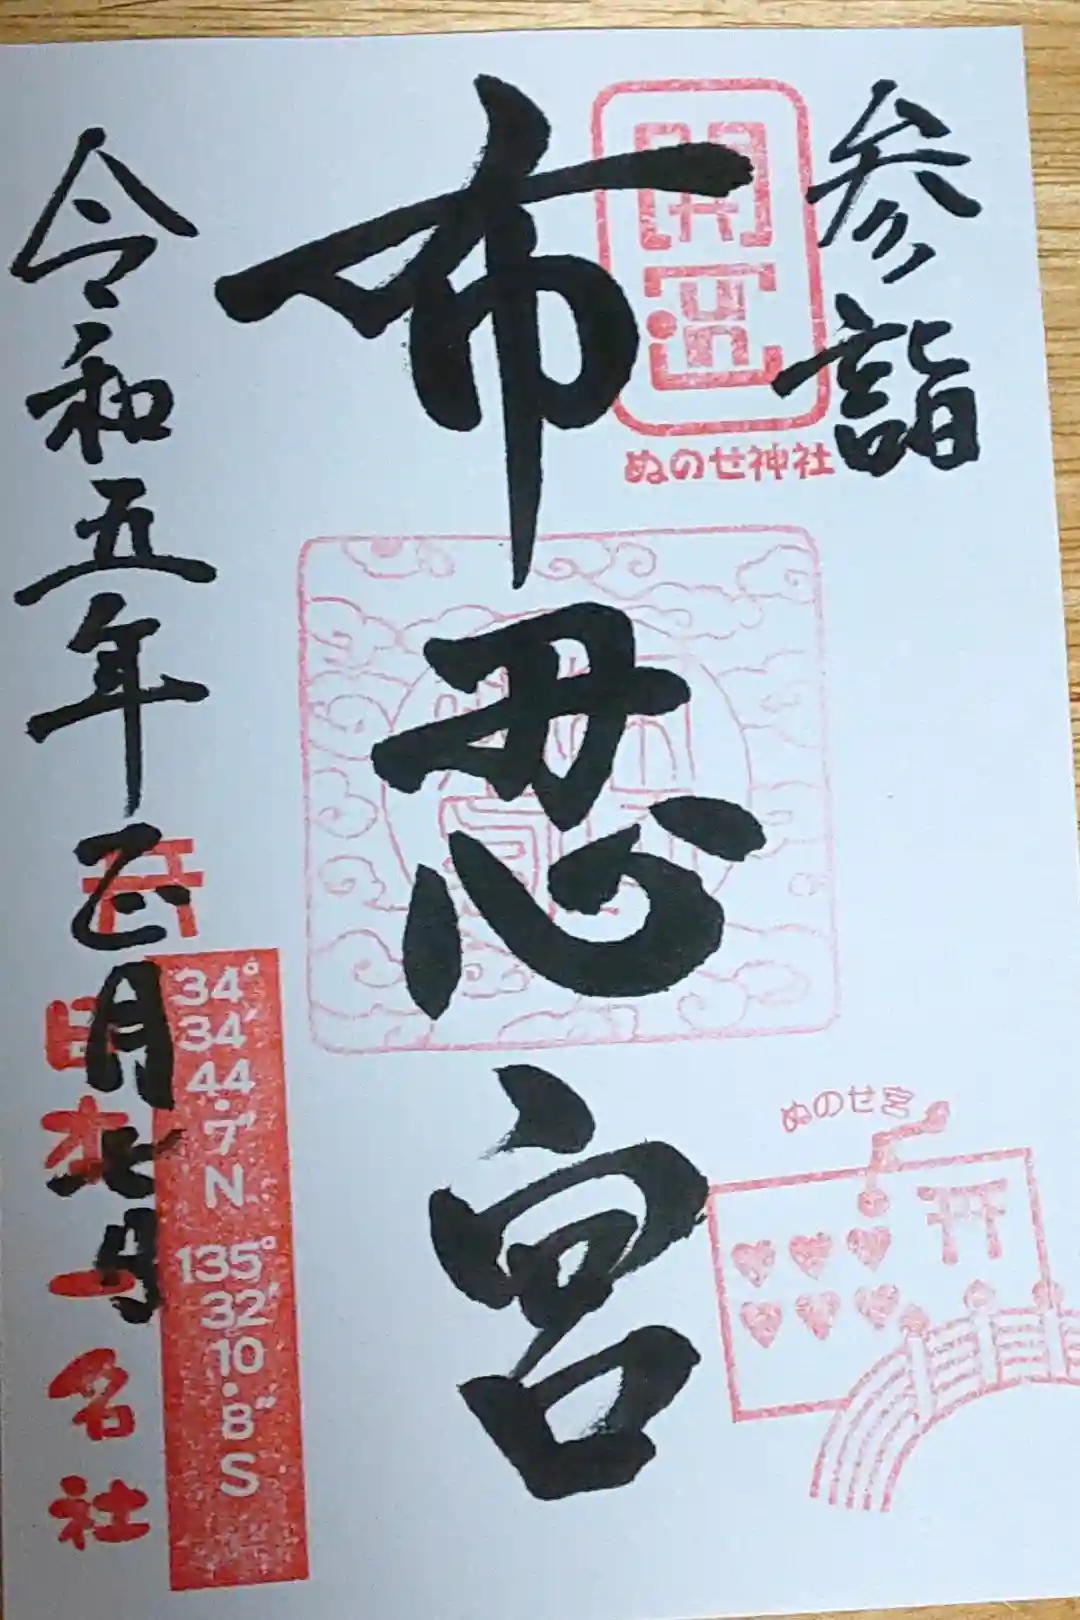 参詣
開運
ぬのせ神社
布忍宮
ぬのせ宮
令和五年正月七日
日本一名社
34°
34′
44.7″
N
135°
32′
10.8″
S